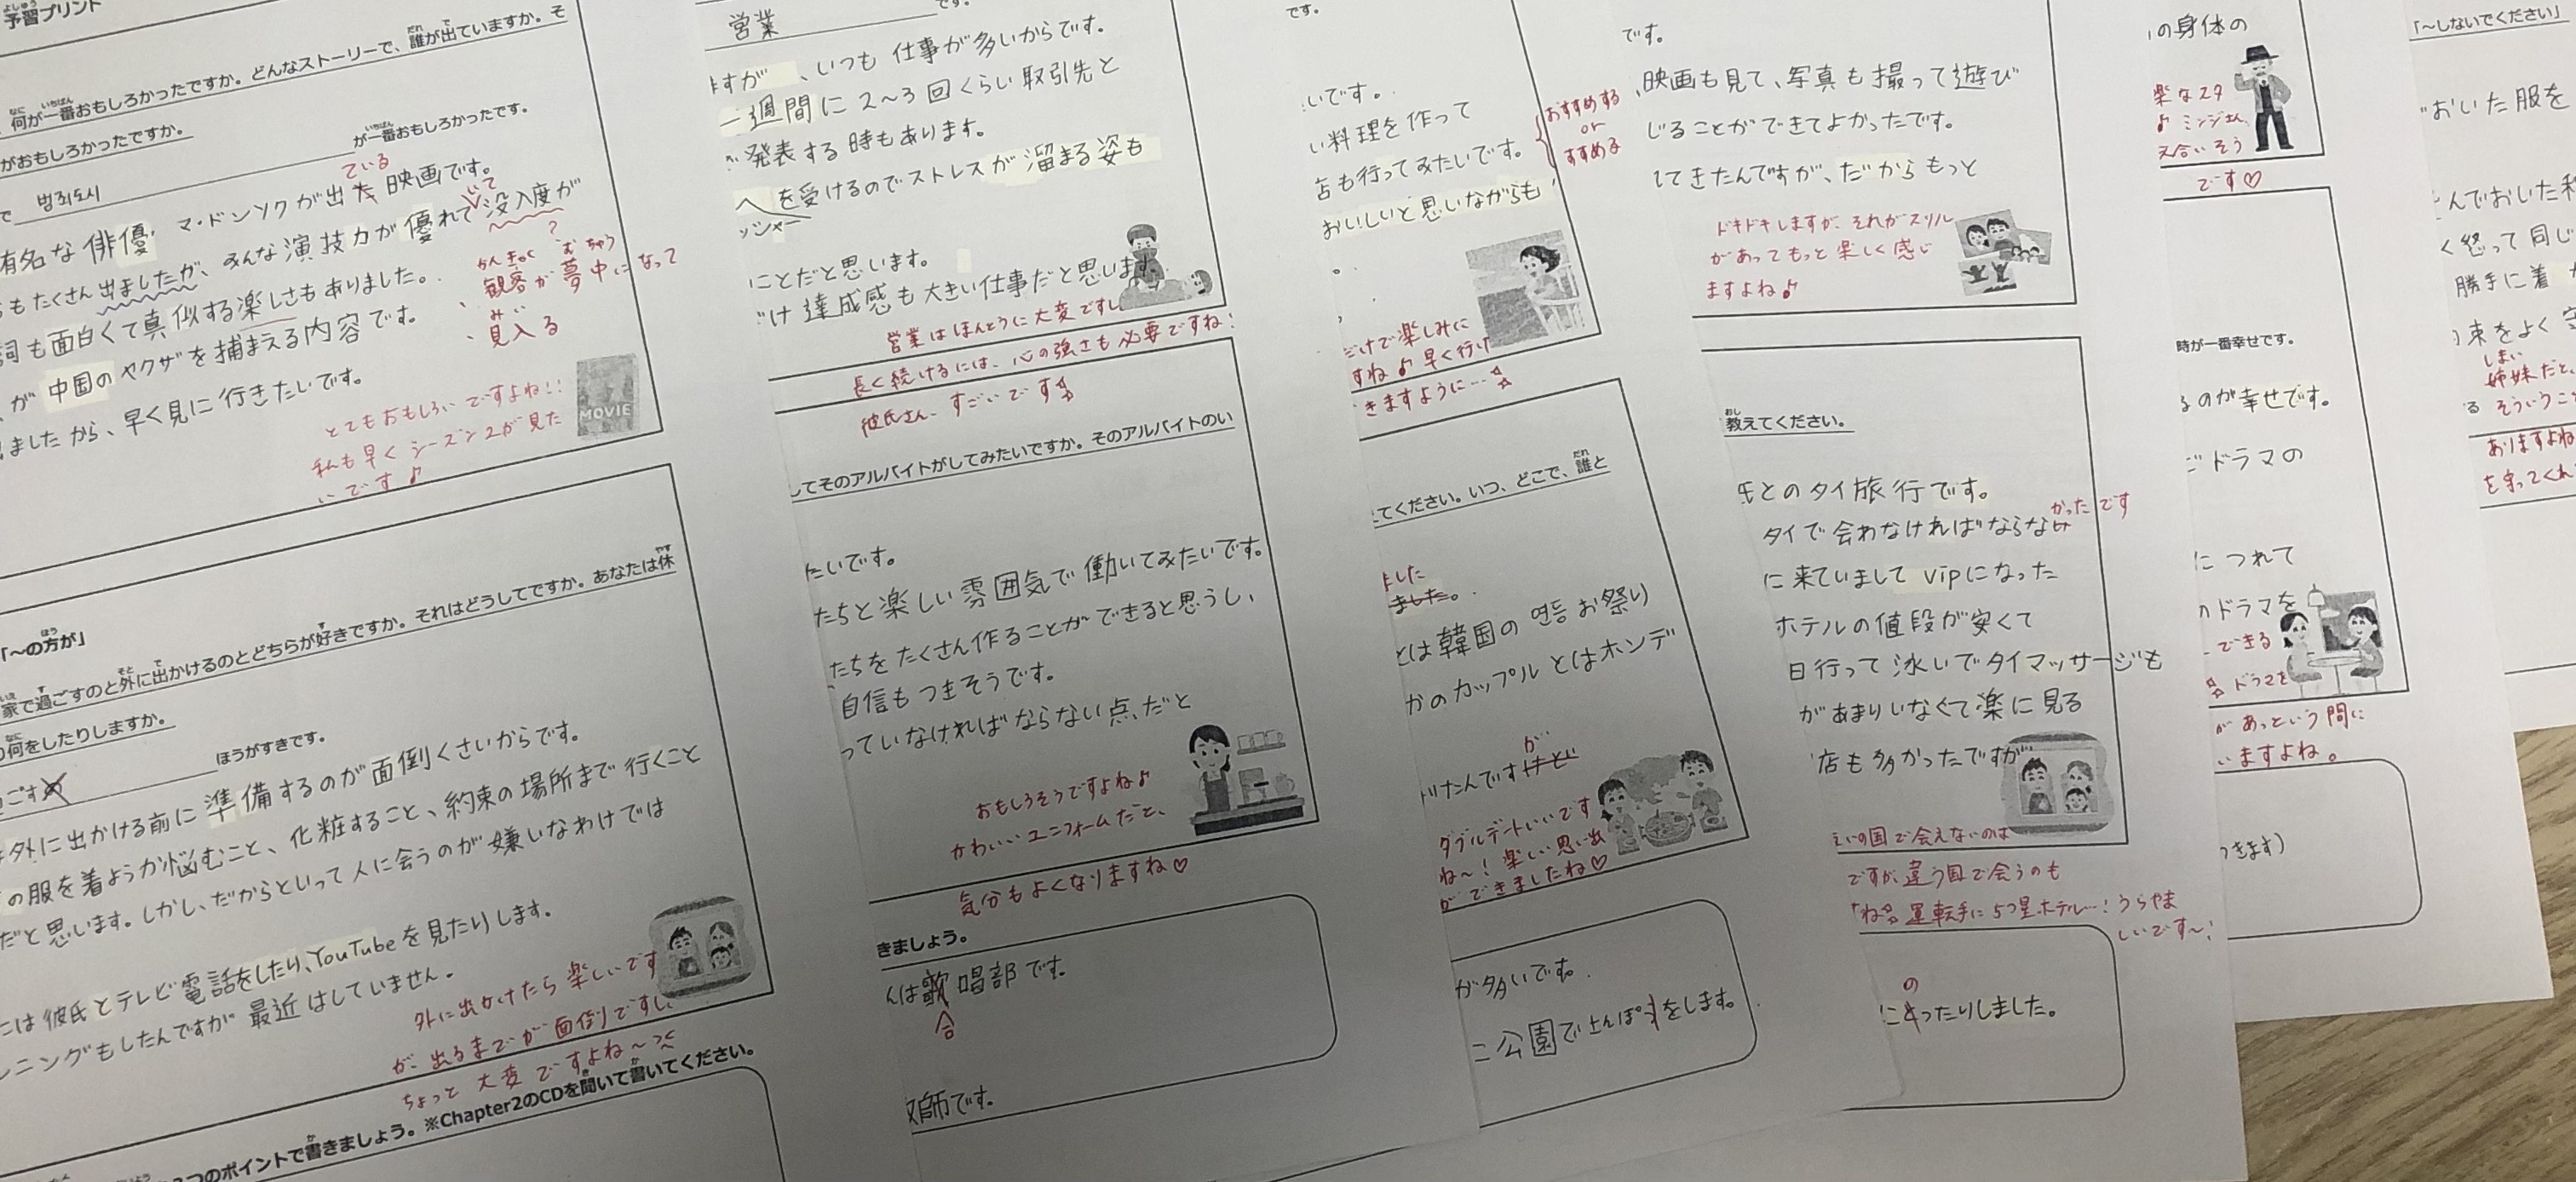 予習プリント
何が一番おもしろかったですか。どんなストーリーで、誰が出ていますか。そ
がおもしろかったですか。
が一番おもしろかったです。
で 범죄도시
ている
有名な俳優 マ・ドンソクが出た映画です。
いて
もたくさん出ましたが、みんな演技力が優れて没入度が
?
詞も面白くて真似する楽しさもありました。
かんきゃく むちゅう
観客が夢中になって
みい
見入る
が中国のヤクザを捕まえる内容です。
ましたから、早く見に行きたいです。
とてもおもしろいですよね!!
私も早くシーズン2が見た
いです♪
MOVIE
「~の方が」
家で過ごすのと外に出かけるのとどちらが好きですか。それはどうしてですか。あなたは休
何をしたりしますか。
ごす
ほうがすきです。
外に出かける前に準備するのが面倒くさいからです。
の服を着ようか悩むこと、化粧すること、約束の場所まで行くこと
だと思います。しかし、だからといって人に会うのが嫌いなわけでは
には彼氏とテレビ電話をしたり、YouTubeを見たりします。
ニングもしたんですが最近はしていません。
外に出かけたら楽しいです
が、出るまでが面倒ですし、
ちょっと大変ですよね~
※Chapter2のCDを聞いて書いてください。
つのポイントで書きましょう。
営業
です。
ますが、いつも仕事が多いからです。
一週間に2~3回くらい取引先と
発表する時もあります。
を受けるのでストレスが溜まる姿も
ッシャー
ことだと思います。
け達成感も大きい仕事だと思います。
営業はほんとうに大変ですし
長く続けるには、心の強さも必要ですね!
彼氏さん、すごいです☆
してそのアルバイトがしてみたいですか。そのアルバイトのい
たいです。
たちと楽しい雰囲気で働いてみたいです。
たちをたくさん作ることができると思うし、
自信もつきそうです。
っていなければならない点だと
おもしろそうですよね♪
かわいいユニフォームだと、
気分もよくなりますね♡
きましょう。
んは歌唱部です。
合
師です。
です。
いです。
い料理を作って
店も行ってみたいです。
おいしいと思いながらも
おすすめする
or
すすめる
だけで楽しみに
すね♪早く行け
きますように…☆
てください。いつ、どこで、誰と
ました
ました。
とは韓国の 연등 お祭り
かのカップルとはホンデ
が
たんですけど
ダブルデートいいです
ね~!楽しい思い出
ができましたね♡
が多いです。
公園でさんぽをします。
です。
映画も見て、写真も撮って遊び
じることができてよかったです。
てきたんですが、だからもっと
ドキドキしますが、それがスリル
があってもっと楽しく感じ
ますよね♪
教えてください。
氏とのタイ旅行です。
かったです
タイで会わなければならない
に来ていましてvipになった
ホテルの値段が安くて
日行って泳いでタイマッサージも
があまりいなくて楽に見る
店も多かったですが
の国で会えないのは
ですが違う国で会うのも
運転手に5つ星ホテル…!うらやま
しいです~!
の
ったりしました。
の身体の
楽なスタ
♪ミンジさん、
え合いそう
です♡
時が一番幸せです。
るのが幸せです。
ドラマの
につれて
のドラマを
できる
ドラマを
があっという間に
いますよね。
つきます)
「~しないでください」
おいた服を
んでおいた
く怒って同じ
勝手に着
束をよく
しまい
姉妹だと、
そういうこ
ありますよね
を守ってくれ